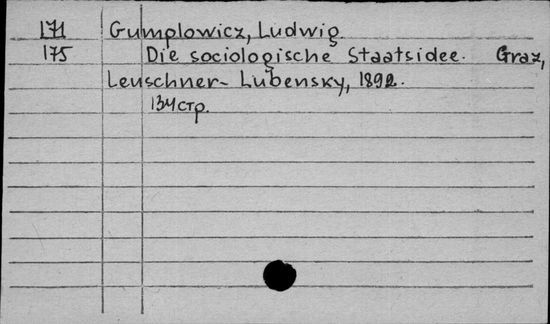 171 Gumplowicz, Ludwig.
175 Die sociologische Staatsidee. Graz,
Leuschner-Lubensky, 1892.
134 стр.